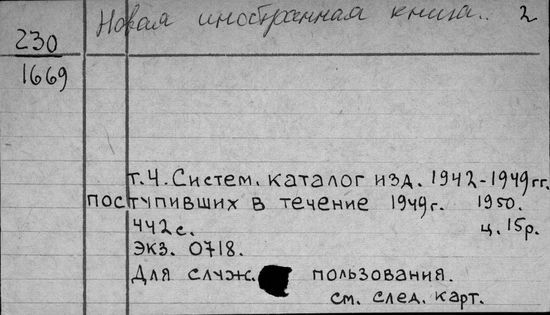 Новая иностранная книга.. 2
230
1669
т.4. Систем. каталог изд. 1942-1949гг.
поступивших в течение 1949г. 1950.
442с. ц. 15р.
Экз. 0718.
Для служ. пользования.
см. след. карт.